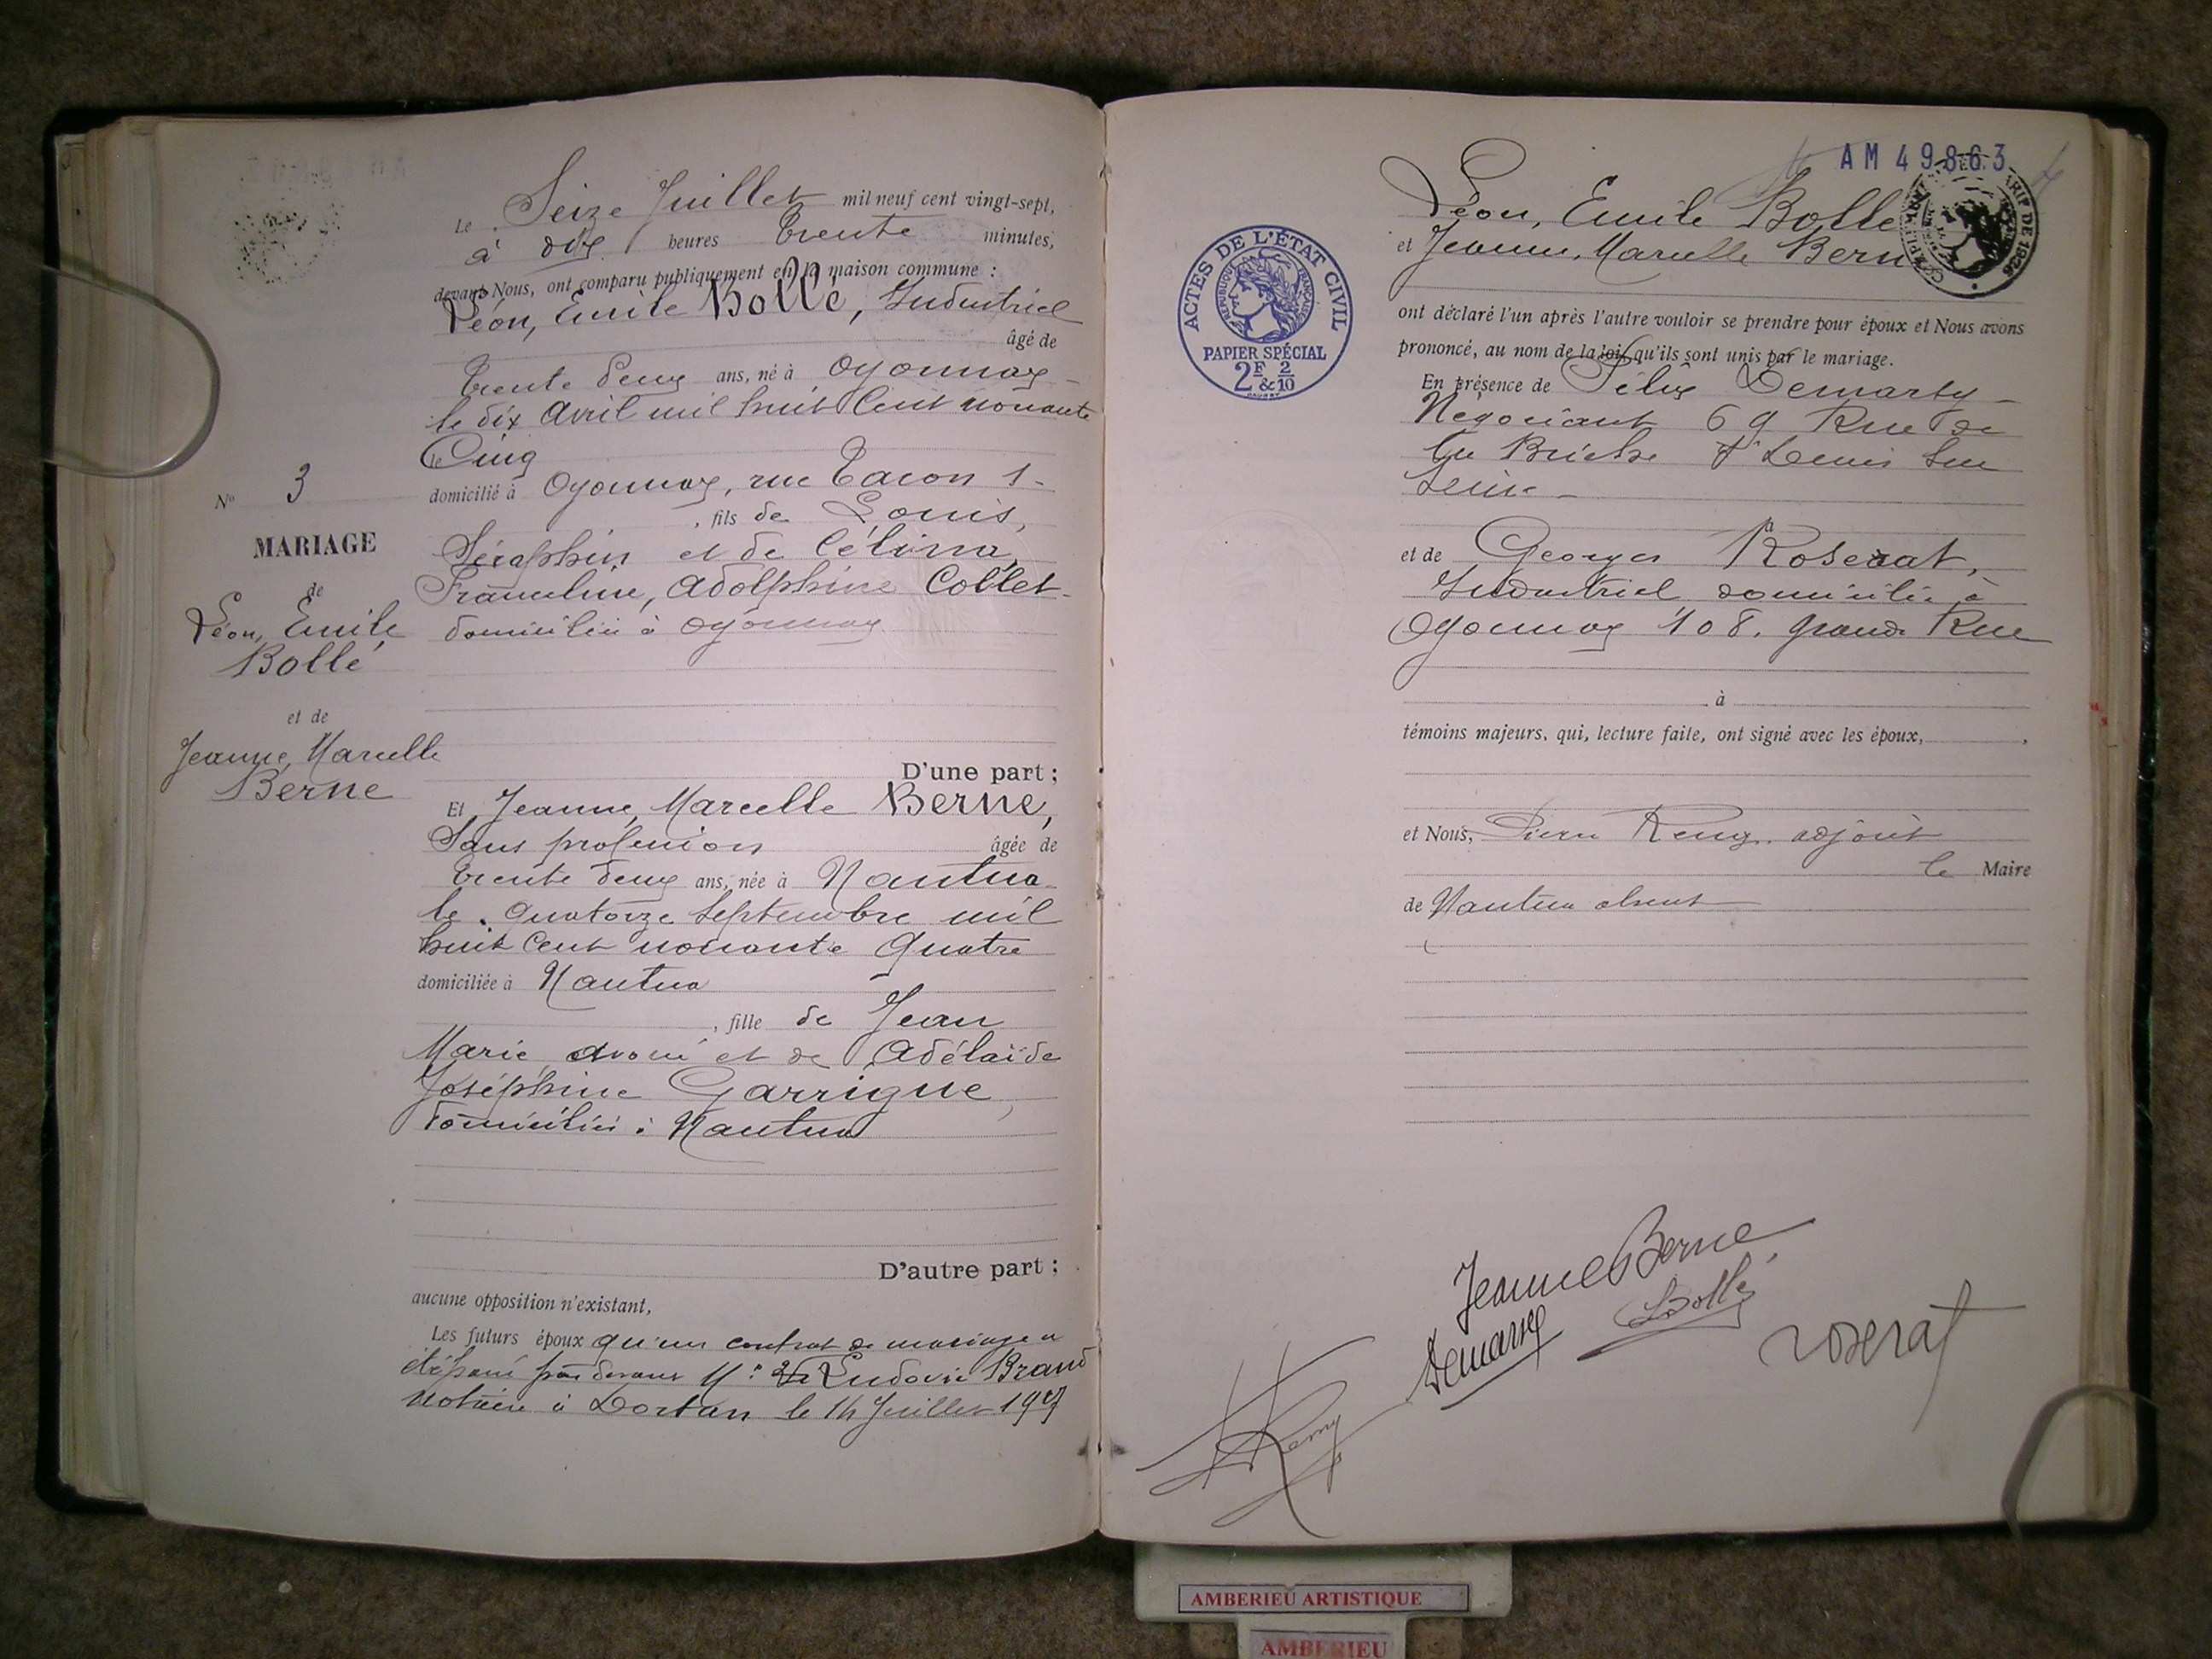 Nº 3
MARIAGE
de
Léon, Emile
Bollé
et de
Jeanne, Marcelle
Berne
Le Seize Juillet mil neuf cent vingt-sept,
à dix heures Trente minutes,
devant Nous, ont comparu publiquement en la maison commune :
Léon, Emile Bollé, Industriel
âgé de
Trente deux ans, né à Oyonnax
le dix Avril mil huit Cent nonante
Cinq
domicilié à Oyonnax, rue Tacon 1
, fils de Louis,
Séraphin et de Célima,
Françeline, Adolphine Collet
domiciliés à Oyonnax
D'une part ;
Et Jeanne, Marcelle Berne,
Sans profession âgée de
Trente deux ans, née à Nantua
le quatorze Septembre mil
huit Cent nonante Quatre
domiciliée à Nantua
, fille de Jean
Marie, avoué et de Adélaïde
Joséphine Garrigue,
domiciliés à Nantua
D'autre part ;
aucune opposition n'existant,
Les futurs époux qu'un contrat de mariage a
été passé par devant Mᵉ Ludovic Brand
Notaire à Dortan le 14 Juillet 1927
AM 49863
ACTES DE L'ÉTAT CIVIL
RÉPUBLIQUE FRANÇAISE
PAPIER SPÉCIAL
2F 2
& 10
TARIF DE 1926
Léon, Emile Bollé
et Jeanne, Marcelle Berne
ont déclaré l'un après l'autre vouloir se prendre pour époux et Nous avons
prononcé, au nom de la loi, qu'ils sont unis par le mariage.
En présence de Félix Demarsy
Négociant 69 Rue de
la Briche St Denis sur
Seine
et de Georges Roserat,
Industriel domicilié à
Oyonnax 108. grande Rue
à
témoins majeurs, qui, lecture faite, ont signé avec les époux,
et Nous, Pierre Remy, adjoint
le Maire
de Nantua absent
Jeanne Berne
Demarsy
Bollé
Roserat
Remy
AMBERIEU ARTISTIQUE
AMBERIEU